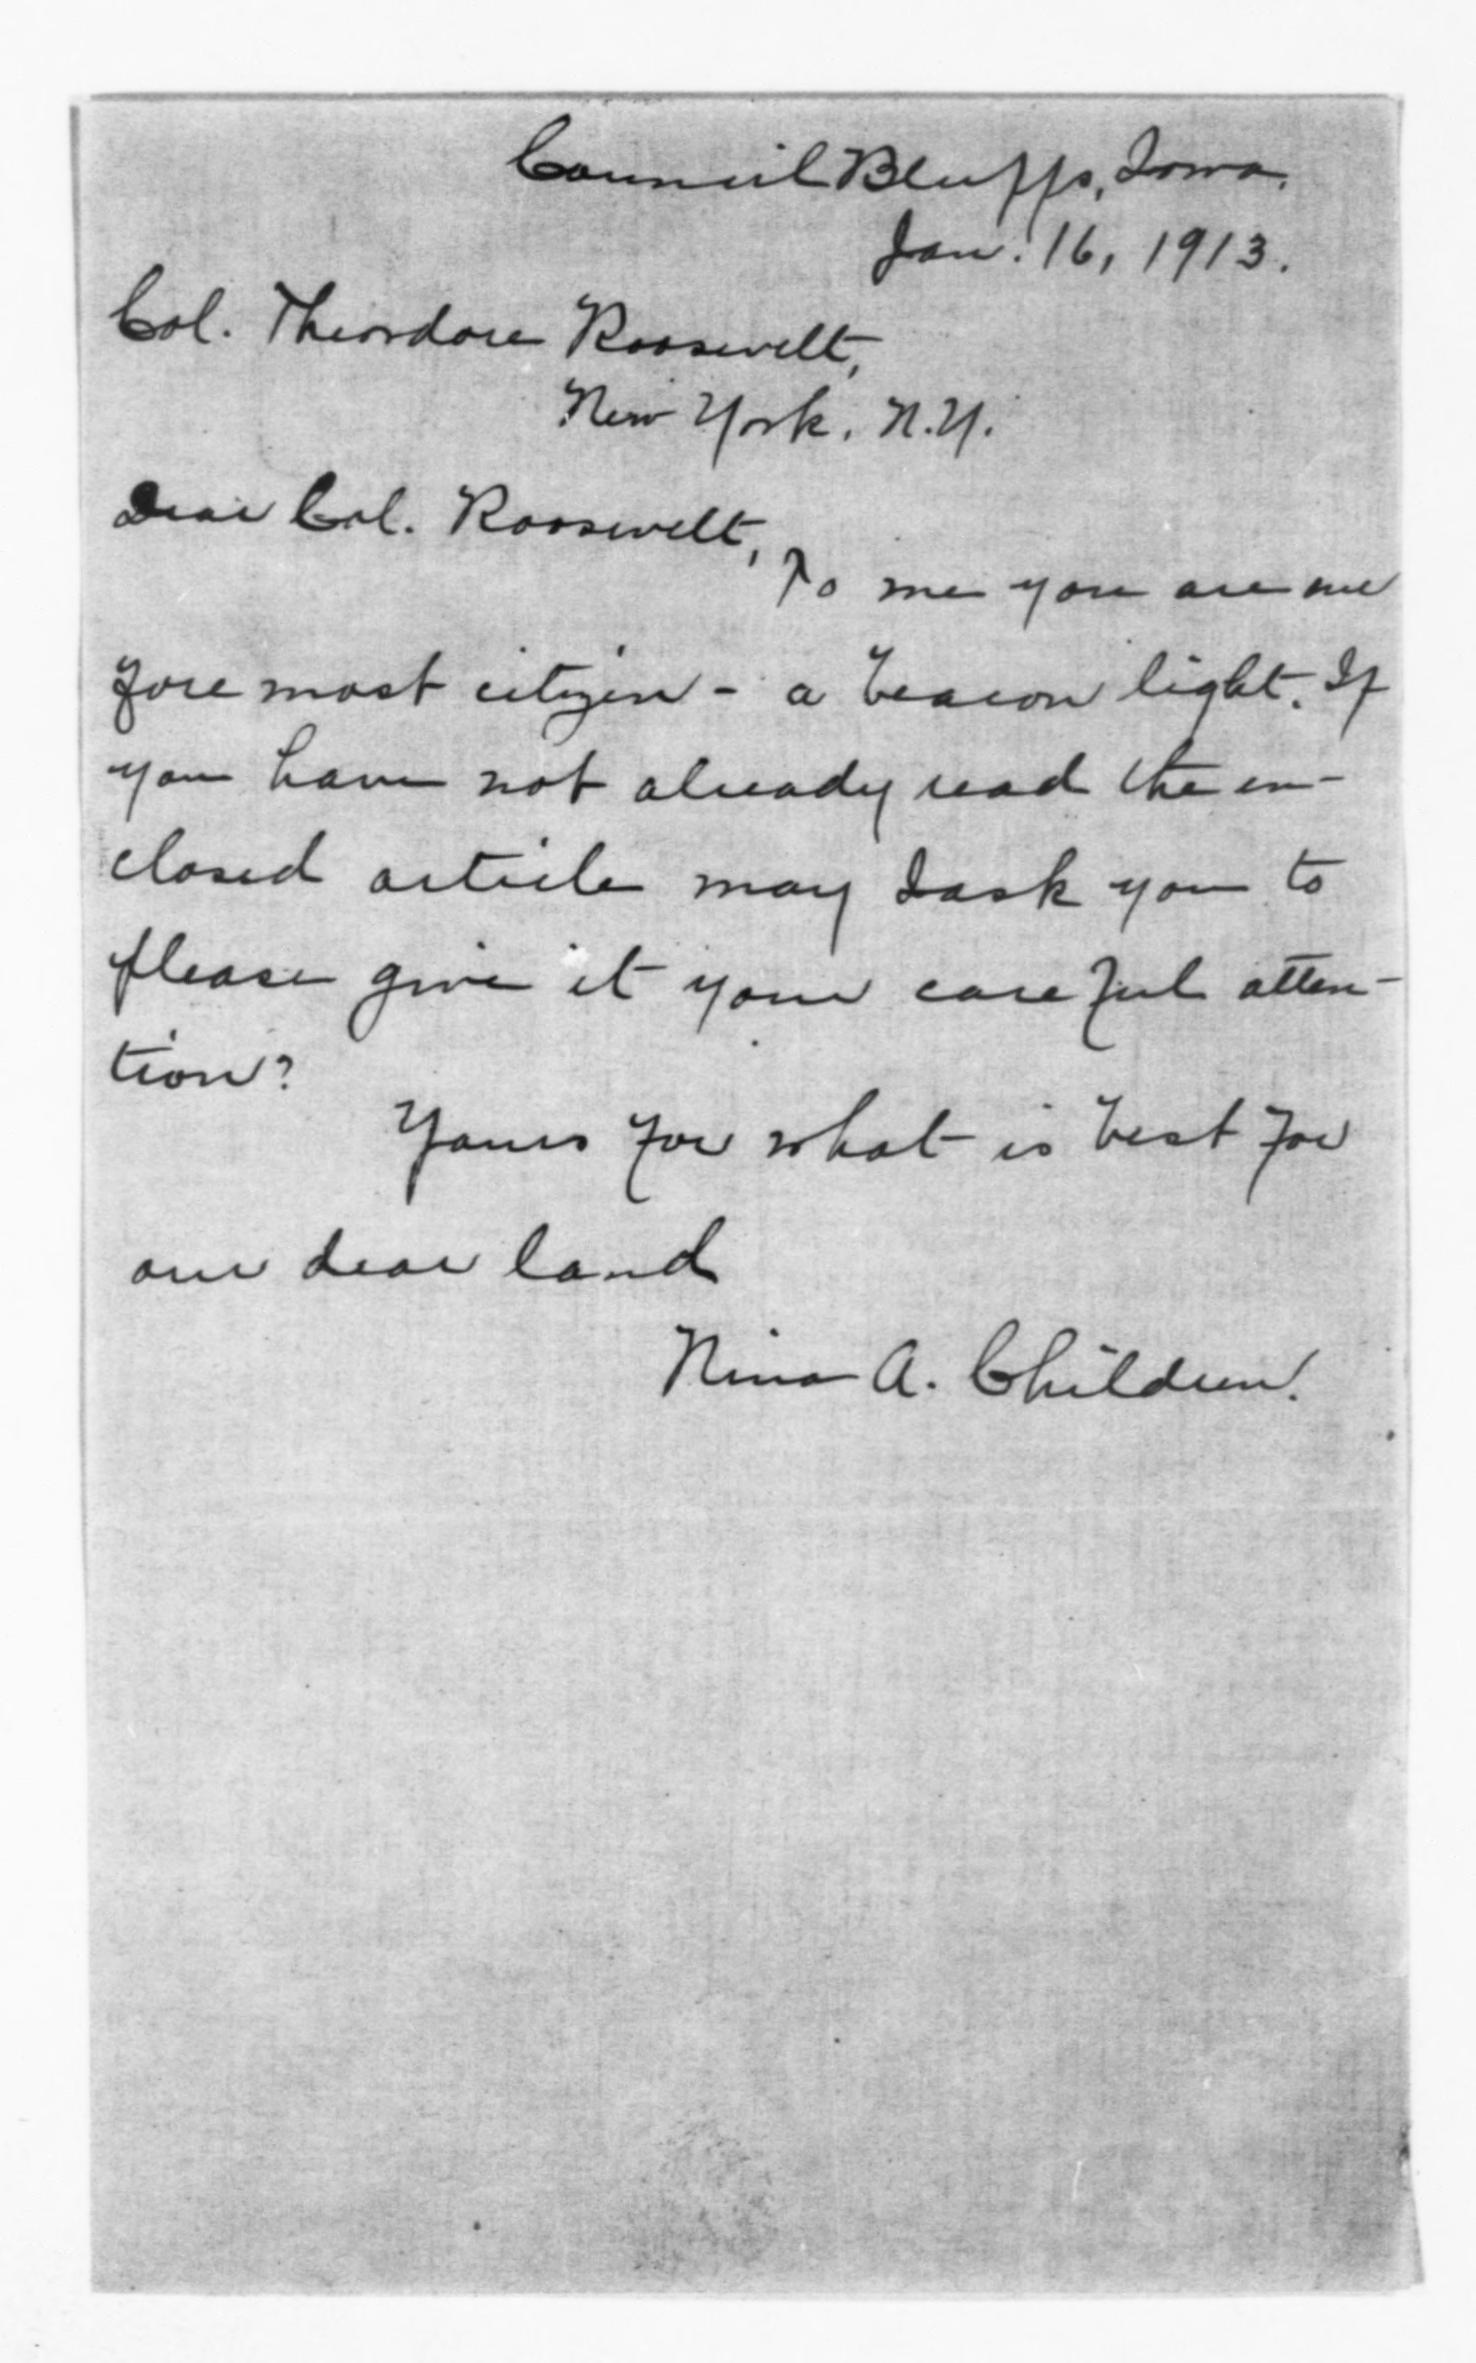 Council Bluffs, Iowa.
Jan. 16, 1913.
Col. Theordore Roosevelt,
New York, N.Y.
Dear Col. Roosevelt,
To me you are our
fore most citizen - a beacon light. If
you have not already read the en-
closed article may I ask you to
please give it your careful atten-
tion?
Yours for what is best for
our dear land
Nina A. Children.